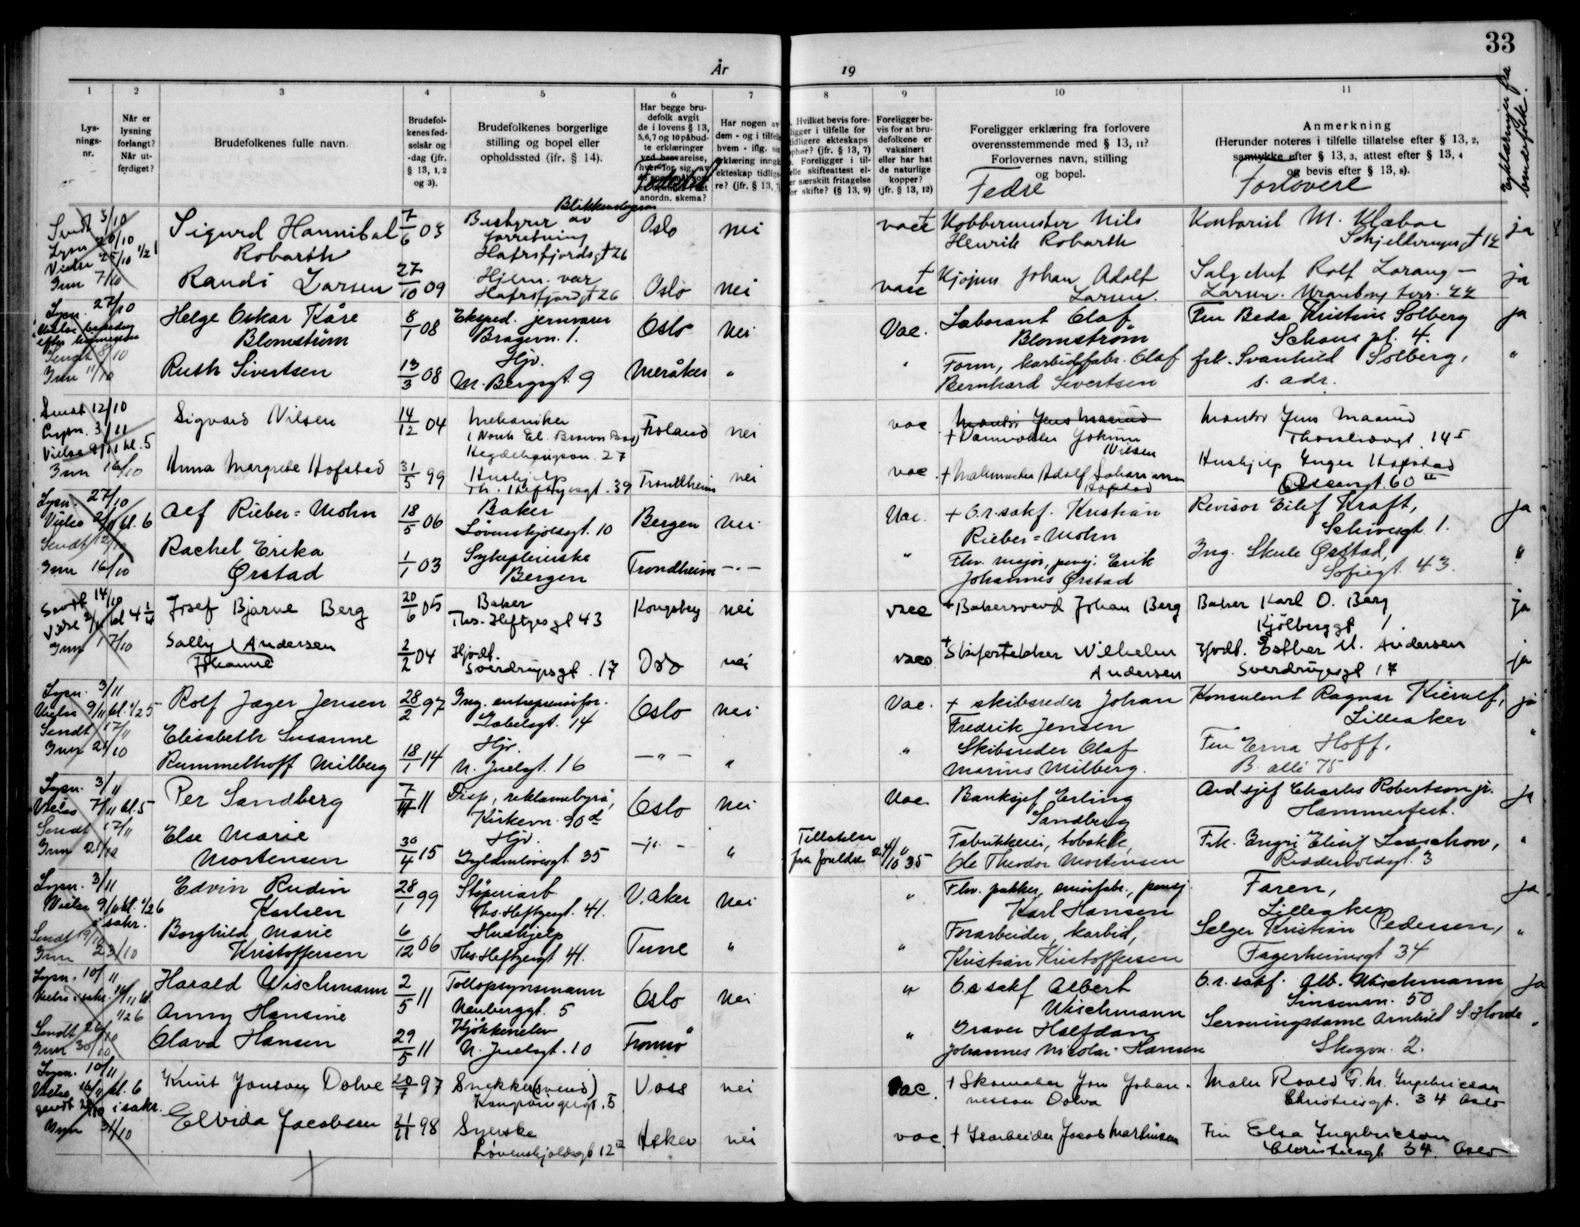 33
År
19
1
2
3
4
5
6
7
8
9
10
11
Lys-
nings-
nr.
Når er
lysning
forlangt?
Når ut-
ferdiget?
Brudefolkenes fulle navn.
Brudefol-
kenes fød-
selsår og
-dag (jfr.
§ 13, 1, 2
og 3).
Brudefolkenes borgerlige
stilling og bopel eller
opholdssted (jfr. § 14).
Har begge bru-
defolk avgit
de i lovens § 13,
5, 6, 7 og 10 påbud-
te erklæringer
anordn. skema?
Fødested
Har nogen av
dem
hvem
re? (jfr. § 13, 7)
Hvilket bevis fore-
ligger i tilfelle for
tidligere ekteskaps
ophør? (jfr. § 13, 7)
Foreligger i til-
felle skifteattest el-
ler særskilt fritagelse
for skifte? (§ 13, 9)
Foreligger be-
vis for at bru-
defolkene er
vaksinert
eller har hat
de naturlige
kopper?
(jfr. § 13, 12)
Foreligger erklæring fra forlovere
overensstemmende med § 13, 11?
Forlovernes navn, stilling
og bopel.
Fedre
Anmerkning
(Herunder noteres i tilfelle tillatelse efter § 13, 2,
samtykke efter § 13, 3, attest efter § 13, 4
og bevis efter § 13, 8).
Forlovere
Erklæringer fra
brudefolk.
Sigurd Hannibal
Robarth
7/6 08
Bestyrer av Blikkenslager
forretning
Hafrsfjordsgt 26
Oslo
nei
vacc
† Kobbermester Nils
Henrik Robarth
Kontorist M. Klæboe
Schjellerupsgt 12
ja
Inn 7/10
Randi Larsen
27/10 09
Hjem. vær
Hafrsfjordgt 26
Oslo
nei
vacc
† Kjøpm Johan Adolf
Larsen.
Salgchef Rolf Lorang-
Larsen. Uranborg terr. 22
ja
Lysn. 27/10
Helge Oskar Kåre
Blomstrøm
8/1 08
Eksped. jernvarer
Bragesv. 1.
Oslo
nei
Vac.
Laborant Olaf
Blomstrøm
Fru Beda Kristine Solberg
Schous pl. 4.
ja
Inn 11/10
Ruth Sivertsen
13/3 08
Hjv.
M. Bergsgt. 9
Meråker
"
"
Form, karbidfabr. Olaf
Bernhard Sivertsen
frk. Svanhild Solberg,
s. adr.
"
Sendt 12/10
Lysn. 3/11
Sigvard Nilsen
14/12 04
Mekaniker
(Norsk El. Brown Bov)
Hegdehaugsvn. 27
Froland
nei
vac
Montør Jens Maarud
† Dammvokter Jokum
Nilsen
Montør Jens Maarud
14 5
Inn 16/10
Anna Margrethe Hofstad
31/5 99
Hushjelp
Th. Heftyesgt. 39
Trondheim
nei
vac.
Adolf Johannessen
Hofstad
Hushjelp Inger Hofstad
Oscarsgt 60 II
Lysn. 27/10
Alf Rieber-Mohn
18/5 06
Baker
Løvenskjoldsgt. 10
Bergen
nei
Vac.
+ O.r.sakf. Kristian
Rieber-Mohn
Revisor Eilif Kraft,
Schivesgt 1.
ja
Sendt 12/10
Inn 16/10
Rachel Erika
Ørstad
1/1 03
Sykepleierske
Bergen
Trondheim
- " -
"
Fhv. major, pensj. Erik
Johannes Ørstad
Ing. Skule Ørstad,
Sofiegt 43.
"
Sendt 14/10
Josef Bjarne Berg
20/6 05
Baker
Ths. Heftyesgt 43
Kongsberg
nei
vacc
+ Bakersvend Johan Berg
Baker Karl O. Berg
Kjølberggt 1.
ja
Inn 17/10
Solly Andersen
Johanne
2/2 04
Hjvdt.
Sverdrupsgt. 17
Oslo
nei
vacc
+ Skifertekker Wilhelm
Andersen
Hjvdt. Esther M. Andersen
Sverdrupsgt 17
ja
Lysn. 3/11
Vielse 9/11 kl. 1/2 5
Rolf Jæger Jensen
28/2 97
Ing. entreprenørfor.
Gabelsgt. 14
Oslo
nei
Vac.
+ skibsreder Johan
Fredrik Jensen
Konsulent Ragnar Kierulf,
Lilleaker
ja
Sendt 17/11
Inn 21/10
Elisabeth Susanne
Rummelhoff Milberg
18/1 14
Hjv.
N. Juelsgt. 16
- " -
"
"
Skibsreder Olaf
Marius Milberg.
Fru Erna Hoff,
B. allé 75
"
Lysn. 3/11
Vielse 7/11 kl. 5
Per Sandberg
7/11 11
Disp, reklamebyrå,
Kirkevn. 90 d
Oslo
nei
Vac.
Banksjef Erling
Sandberg
Avd sjef Charles Robertson jr.
Hammerfest.
ja
Sendt 17/11
Inn 21/10
Else Marie
Mortensen
30/4 15
Hjv.
Gyldenløvesgt. 35
- " -
"
Tillatelse
fra foreldre 24/10 35
"
Fabrikkeier, tobakk,
Ole Theodor Mortensen
Riddervoldsgt. 3
"
Lysn. 3/11
Vielse 9/11 kl. 1/2 6
i sakr.
Edvin Rudin
Karlsen
28/1 99
Støperiarb
Ths. Heftyesgt. 41.
V. Aker
nei
"
Fhv. pakker, pensj.
Karl Hansen
Faren,
Lilleaker
ja
Sendt 19/11
Inn 23/10
Borghild Marie
Kristoffersen
6/12 06
Hushjelp
Ths. Heftyesgt 41.
Tune
"
"
Forarbeider, karbid,
Kristian Kristoffersen
Selger Kristian Pedersen,
Fagerheimsgt 34
"
Lysn. 10/11
Vielse i sakr. 14/11 kl.
1/2 6
Harald Wischmann
2/5 11
Tollopsynsmann
Neuberggt. 5
Oslo
nei
"
O.r.sakf Albert
Wischmann
O.r.sakf. Alb. Wischmann
Sinsenvn. 50
ja
Inn 30/10
Anny Hansine
Olava Hansen
29/5 11
Kjøkkenelev
N. Juelsgt. 10
Tromsø
"
Graver Halfdan
Johannes Nicolai Hansen
Serveringsdame Arnhild S. Hovde
Skogvn. 2.
"
Lysn. 10/11
Vielse 16/11 kl. 6
i sakr.
Knut Jonson Dolve
97
Snekker(svend)
Kongsvingergt. 5
Voss
nei
vac.
+ Skomaker Jon Johan-
nesson Dolva
Maler Roald G. M. Ingebrictson
Christiesgt. 34 Oslo
Inn 31/10
Elvida Jacobsen
21/11 98
Syerske
Løvenskjoldsgt 12 IV
Asker
nei
vac.
Jacob Martinsen
Fru Elsa Ingebrictson
Christiesgt 34. Oslo